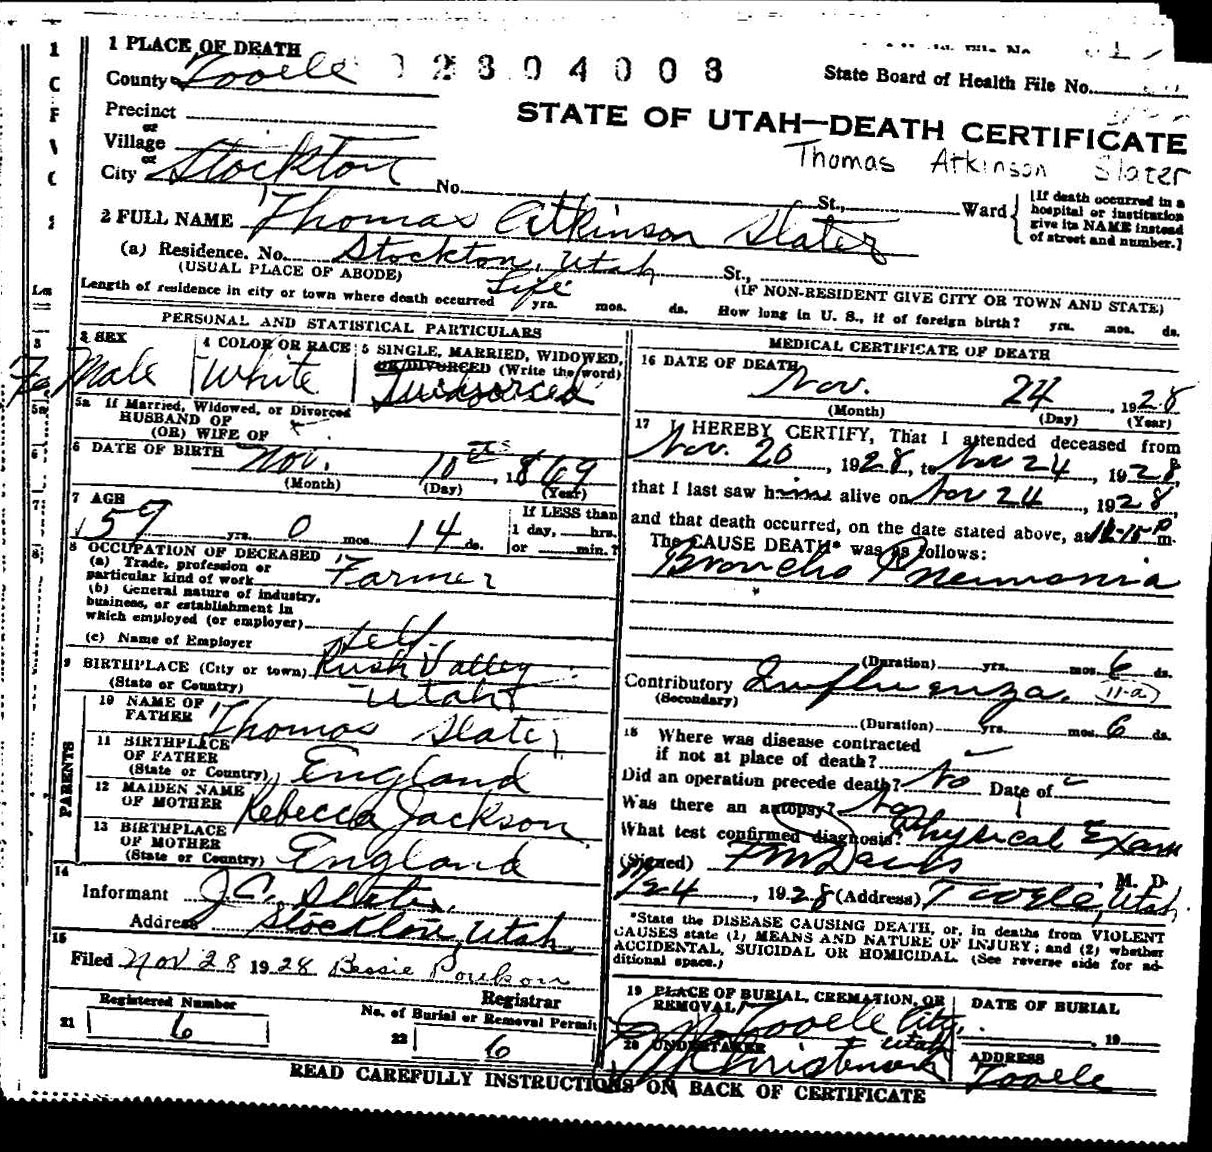 1 PLACE OF DEATH
County Tooele
02804008
State Board of Health File No.
Precinct
or
Village
or
City Stockton No. St., Ward
STATE OF UTAH—DEATH CERTIFICATE
Thomas Atkinson Slater
[If death occurred in a hospital or institution give its NAME instead of street and number.]
2 FULL NAME Thomas Atkinson Slater
(a) Residence. No. Stockton, Utah St.,
(USUAL PLACE OF ABODE)
(IF NON-RESIDENT GIVE CITY OR TOWN AND STATE)
Length of residence in city or town where death occurred Life yrs. mos. ds. How long in U. S., if of foreign birth? yrs. mos. ds.
PERSONAL AND STATISTICAL PARTICULARS
3 SEX
Male
4 COLOR OR RACE
White
5 SINGLE, MARRIED, WIDOWED,
OR DIVORCED (Write the word)
5a If Married, Widowed, or Divorced
HUSBAND OF
(OR) WIFE OF
6 DATE OF BIRTH Nov. 10 1869
(Month) (Day) (Year)
7 AGE
59 yrs. 0 mos. 14 ds.
If LESS than
1 day, hrs.
or min.?
8 OCCUPATION OF DECEASED
(a) Trade, profession or
particular kind of work Farmer
(b) General nature of industry,
business, or establishment in
which employed (or employer)
(c) Name of Employer Self
9 BIRTHPLACE (City or town) Rush Valley
(State or Country) Utah
PARENTS
10 NAME OF
FATHER Thomas Slater
11 BIRTHPLACE
OF FATHER
(State or Country) England
12 MAIDEN NAME
OF MOTHER Rebecca Jackson
13 BIRTHPLACE
OF MOTHER
(State or Country) England
14
Informant J.C. Slater
Address Stockton, Utah
15
Filed Nov 28 1928 Bessie Poulson
Registrar
Registered Number
21 6
No. of Burial or Removal Permit
22 6
MEDICAL CERTIFICATE OF DEATH
16 DATE OF DEATH
Nov. 24, 1928
(Month) (Day) (Year)
17 I HEREBY CERTIFY, That I attended deceased from
Nov. 20, 1928, to Nov 24, 1928,
that I last saw him alive on Nov 24, 1928,
and that death occurred, on the date stated above, at 11-15 P m.
The CAUSE DEATH* was as follows:
Broncho Pneumonia
(Duration) yrs. mos. 6 ds.
Contributory Influenza. 11-a
(Secondary)
(Duration) yrs. mos. 6 ds.
18 Where was disease contracted
if not at place of death?
Did an operation precede death? No Date of
Was there an autopsy? No
What test confirmed diagnosis? Physical Exam
(Signed) F M Davis M. D.
11/24, 1928 (Address) Tooele, Utah.
*State the DISEASE CAUSING DEATH, or, in deaths from VIOLENT
CAUSES state (1) MEANS AND NATURE OF INJURY; and (2) whether
ACCIDENTAL, SUICIDAL OR HOMICIDAL. (See reverse side for ad-
ditional space.)
19 PLACE OF BURIAL, CREMATION, OR
REMOVAL Tooele City,
Utah
DATE OF BURIAL
, 19
20 UNDERTAKER
ADDRESS
Tooele
READ CAREFULLY INSTRUCTIONS ON BACK OF CERTIFICATE